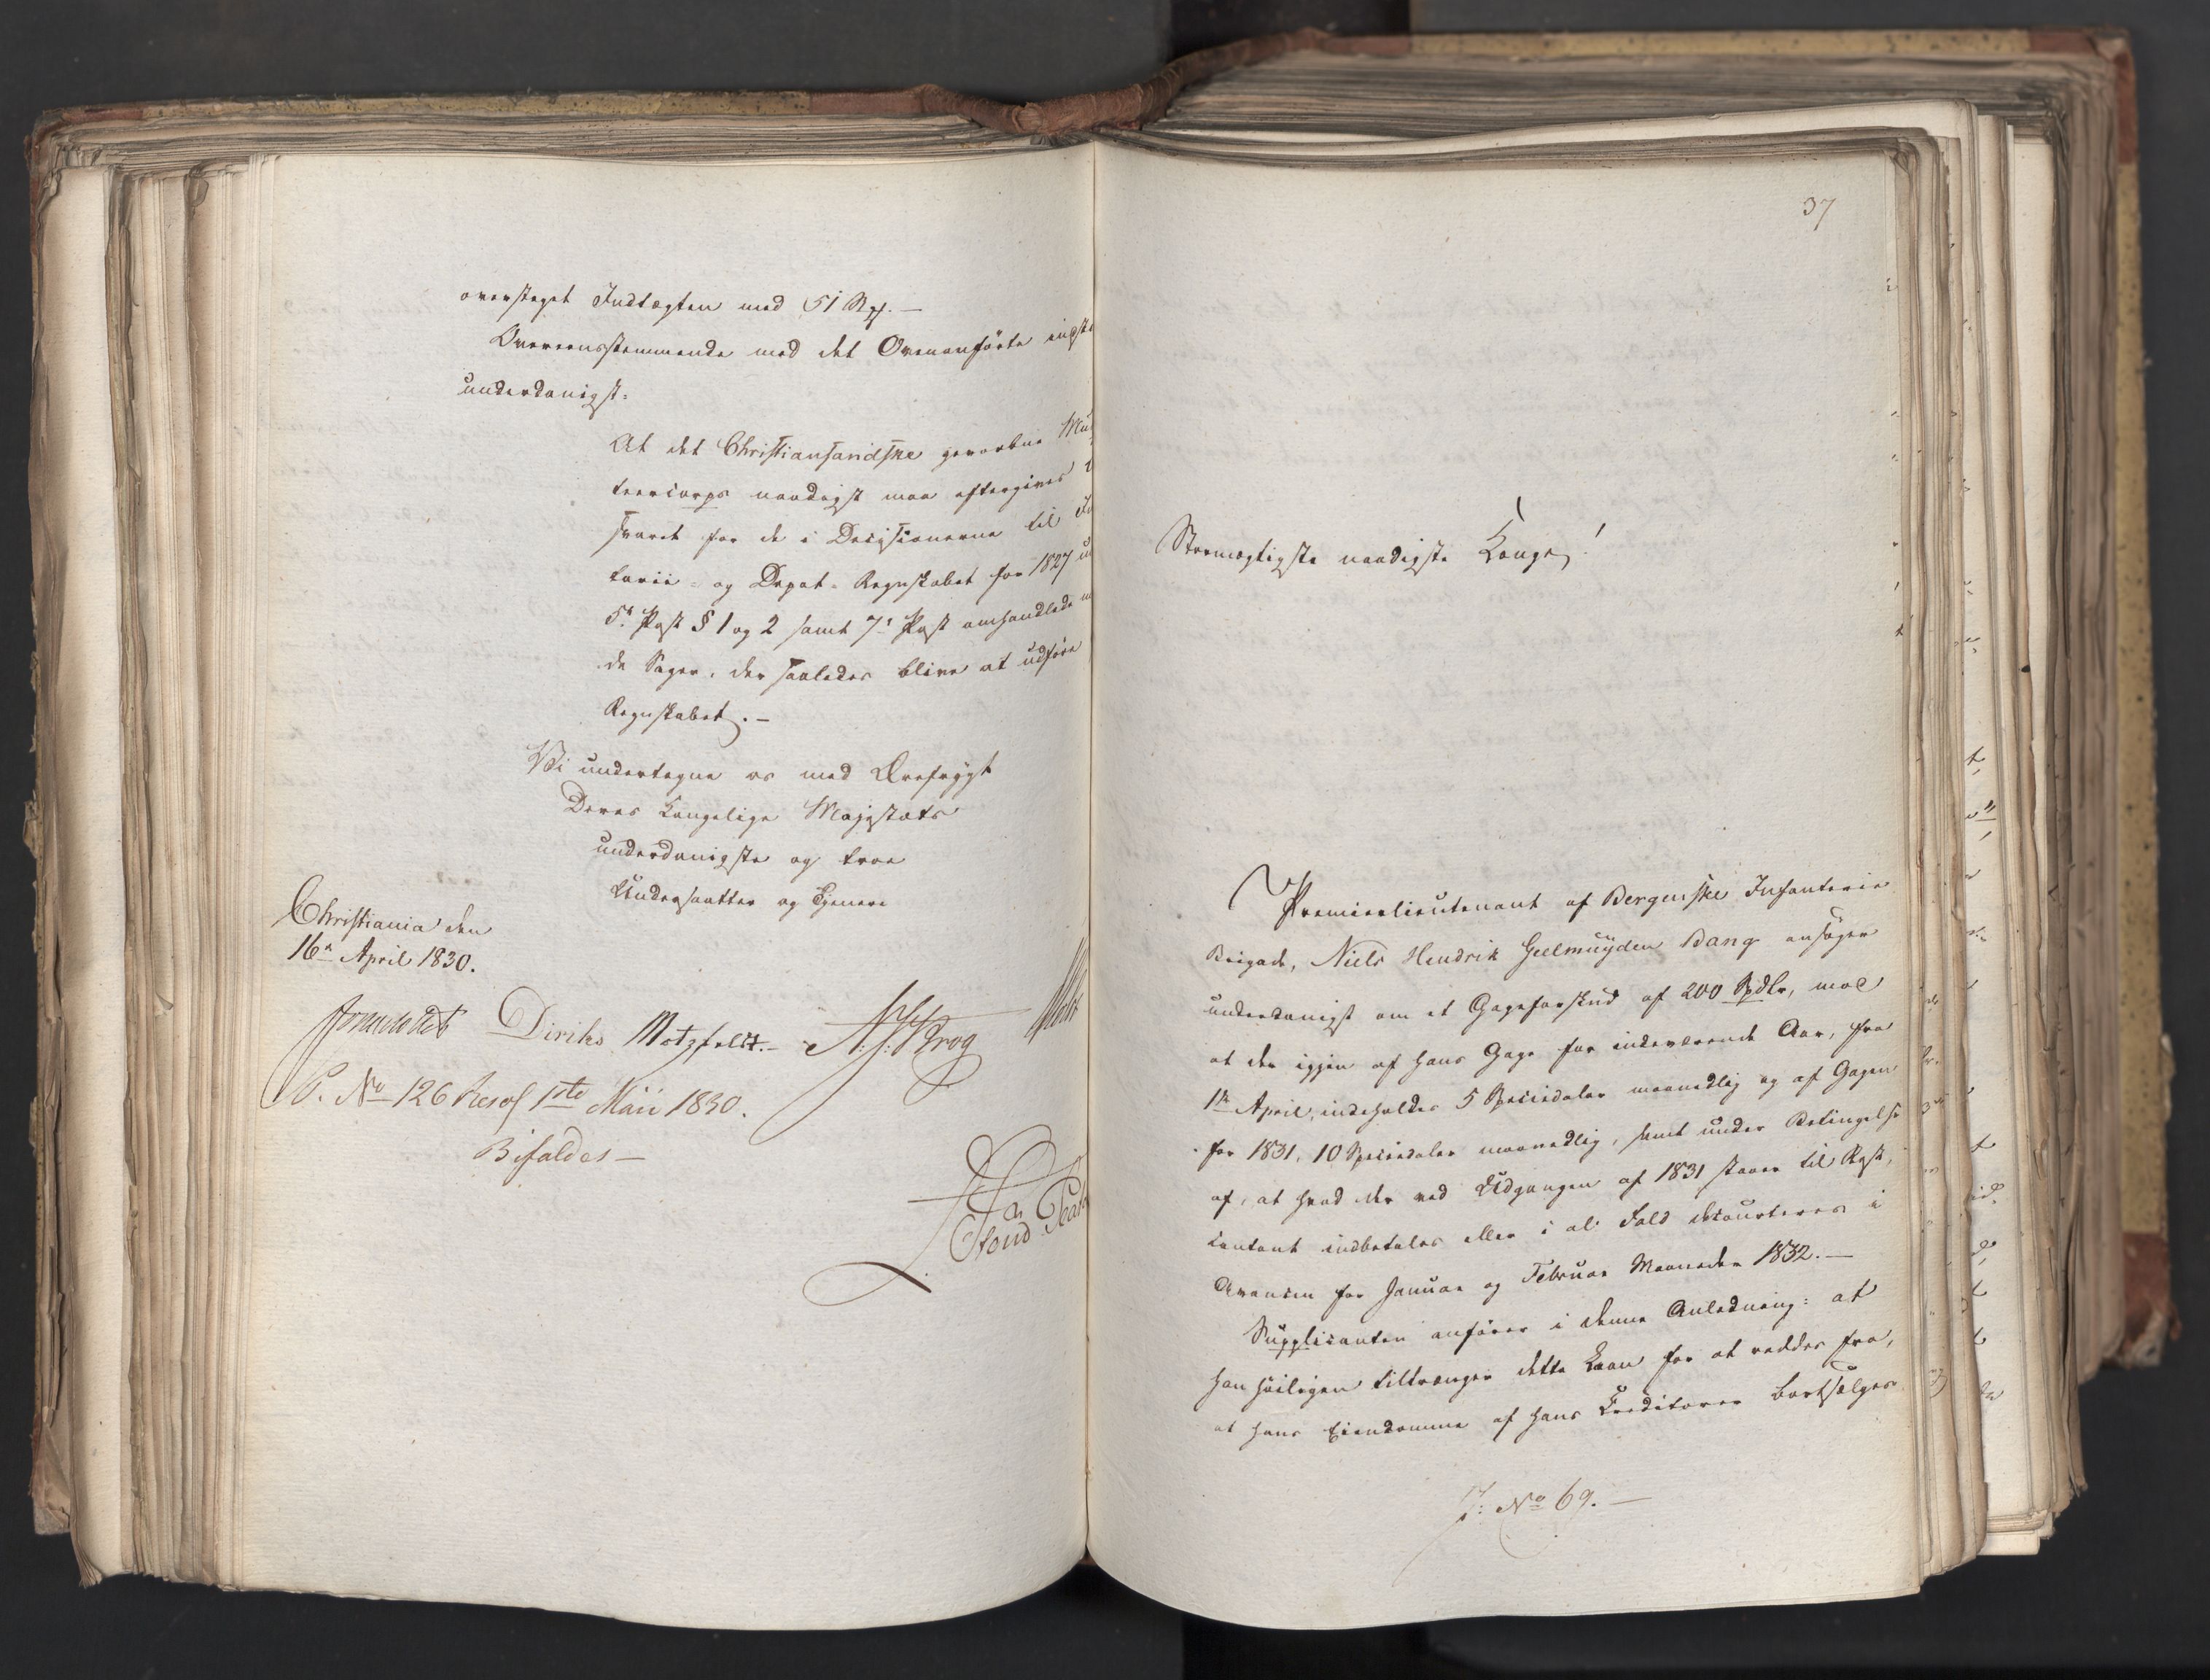 oversteget Indtægten med 51 Rß. —
Overeensstemmende med det Ovenanførte indst
underdanigst:
At det Christiansandske gevorbne Mus
keteercorps naadigst maa eftergives A
svaret for de i Decisionerne til In
tarii- og Depot-Regnskabet for 1827 u
5te Post § 1 og 2 samt 7de Post omhandlede
de Sager, der saaledes blive at udføre
Regnskabet. —
Vi undertegne os med Ærefrygt
Deres Kongelige Majestæts
underdanigste og troe
Undersaatter og Tjenere
Christiania den
16de April 1830.
Diriks Motzfeldt. — Krog
P. No 126 Resol 1ste Maii 1830.
Bifaldes —
37
Stormægtigste naadigste Konge!
Premierlieutenant af Bergenske Infanterie
Brigade, Niels Hendrik Geelmuyden Bang ansøger
underdanigst om et Gageforskud af 200 Spdlr, mod
at der igjen af hans Gage for indeværende Aar, fra
1ste April, indeholdes 5 Speciedaler maanedlig og af Gagen
for 1831, 10 Speciedaler maanedlig, samt under Betingelse
af, at hvad der ved Udgangen af 1831 staaer til Rest,
contant indbetales eller i al Fald decourteres i
Avancen for Januar og Februar Maaneder 1832. —
Supplicanten anfører i denne Anledning: at
han høiligen tiltrænger dette Laan for at reddes fra,
at hans Eiendomme af hans Creditorer bortsælges
J: No 69. —